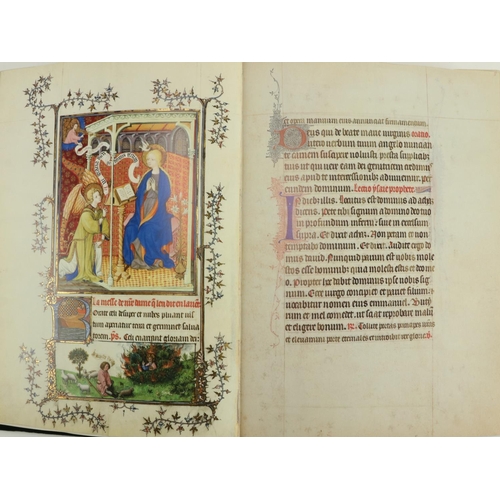 La messe de nre dame q̄ len dit en lauēt
Rorate celi desuper et nubes pluant ius
tum aperiatur terra et germinet salua
torem. ps. Celi enarrant gloriam dei:
et opera manuum eius annunciat firmamentum.
Deus qui de beate marie virginis oratio.
utero verbum tuum angelo nunciante
carnem suscipere voluisti presta supplicibus
tuis ut qui vere eam dei genitricem credimus
eius apud te intercessionibus adiuvemur
eundem dominum. Lectio ysaie prophete.
In diebus illis. Locutus est dominus ad achaz
dicens. Pete tibi signum a domino deo tuo
in profundum inferni: sive in excelsum
supra. Et dixit achaz. Non petam et non
temptabo dominum. Et dixit. Audite ergo
domus david. Nunquid parum est vobis molestos
esse hominibus: quia molesti estis et deo
meo. Propter hoc dabit dominus ipse vobis
signum. Ecce virgo concipiet et pariet filium:
et vocabitur nomen eius emanuel. Butirum
et mel comedet. ut sciat reprobare malum
et eligere bonum. Tollite portas principes vestras
et elevamini porte eternales et introibit rex glorie.